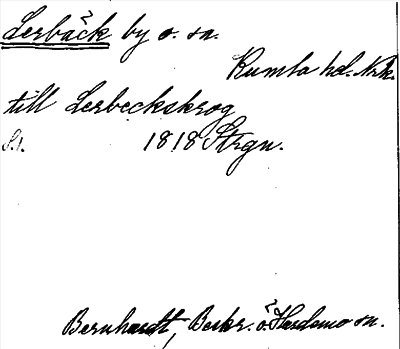 Lerbäck by o. sn.
Kumla hd. Nrk.
till Lerbeckskrog
S.1. 1818 Strgn.
Bernhardt, Beskr. ö. Hardemo sn.